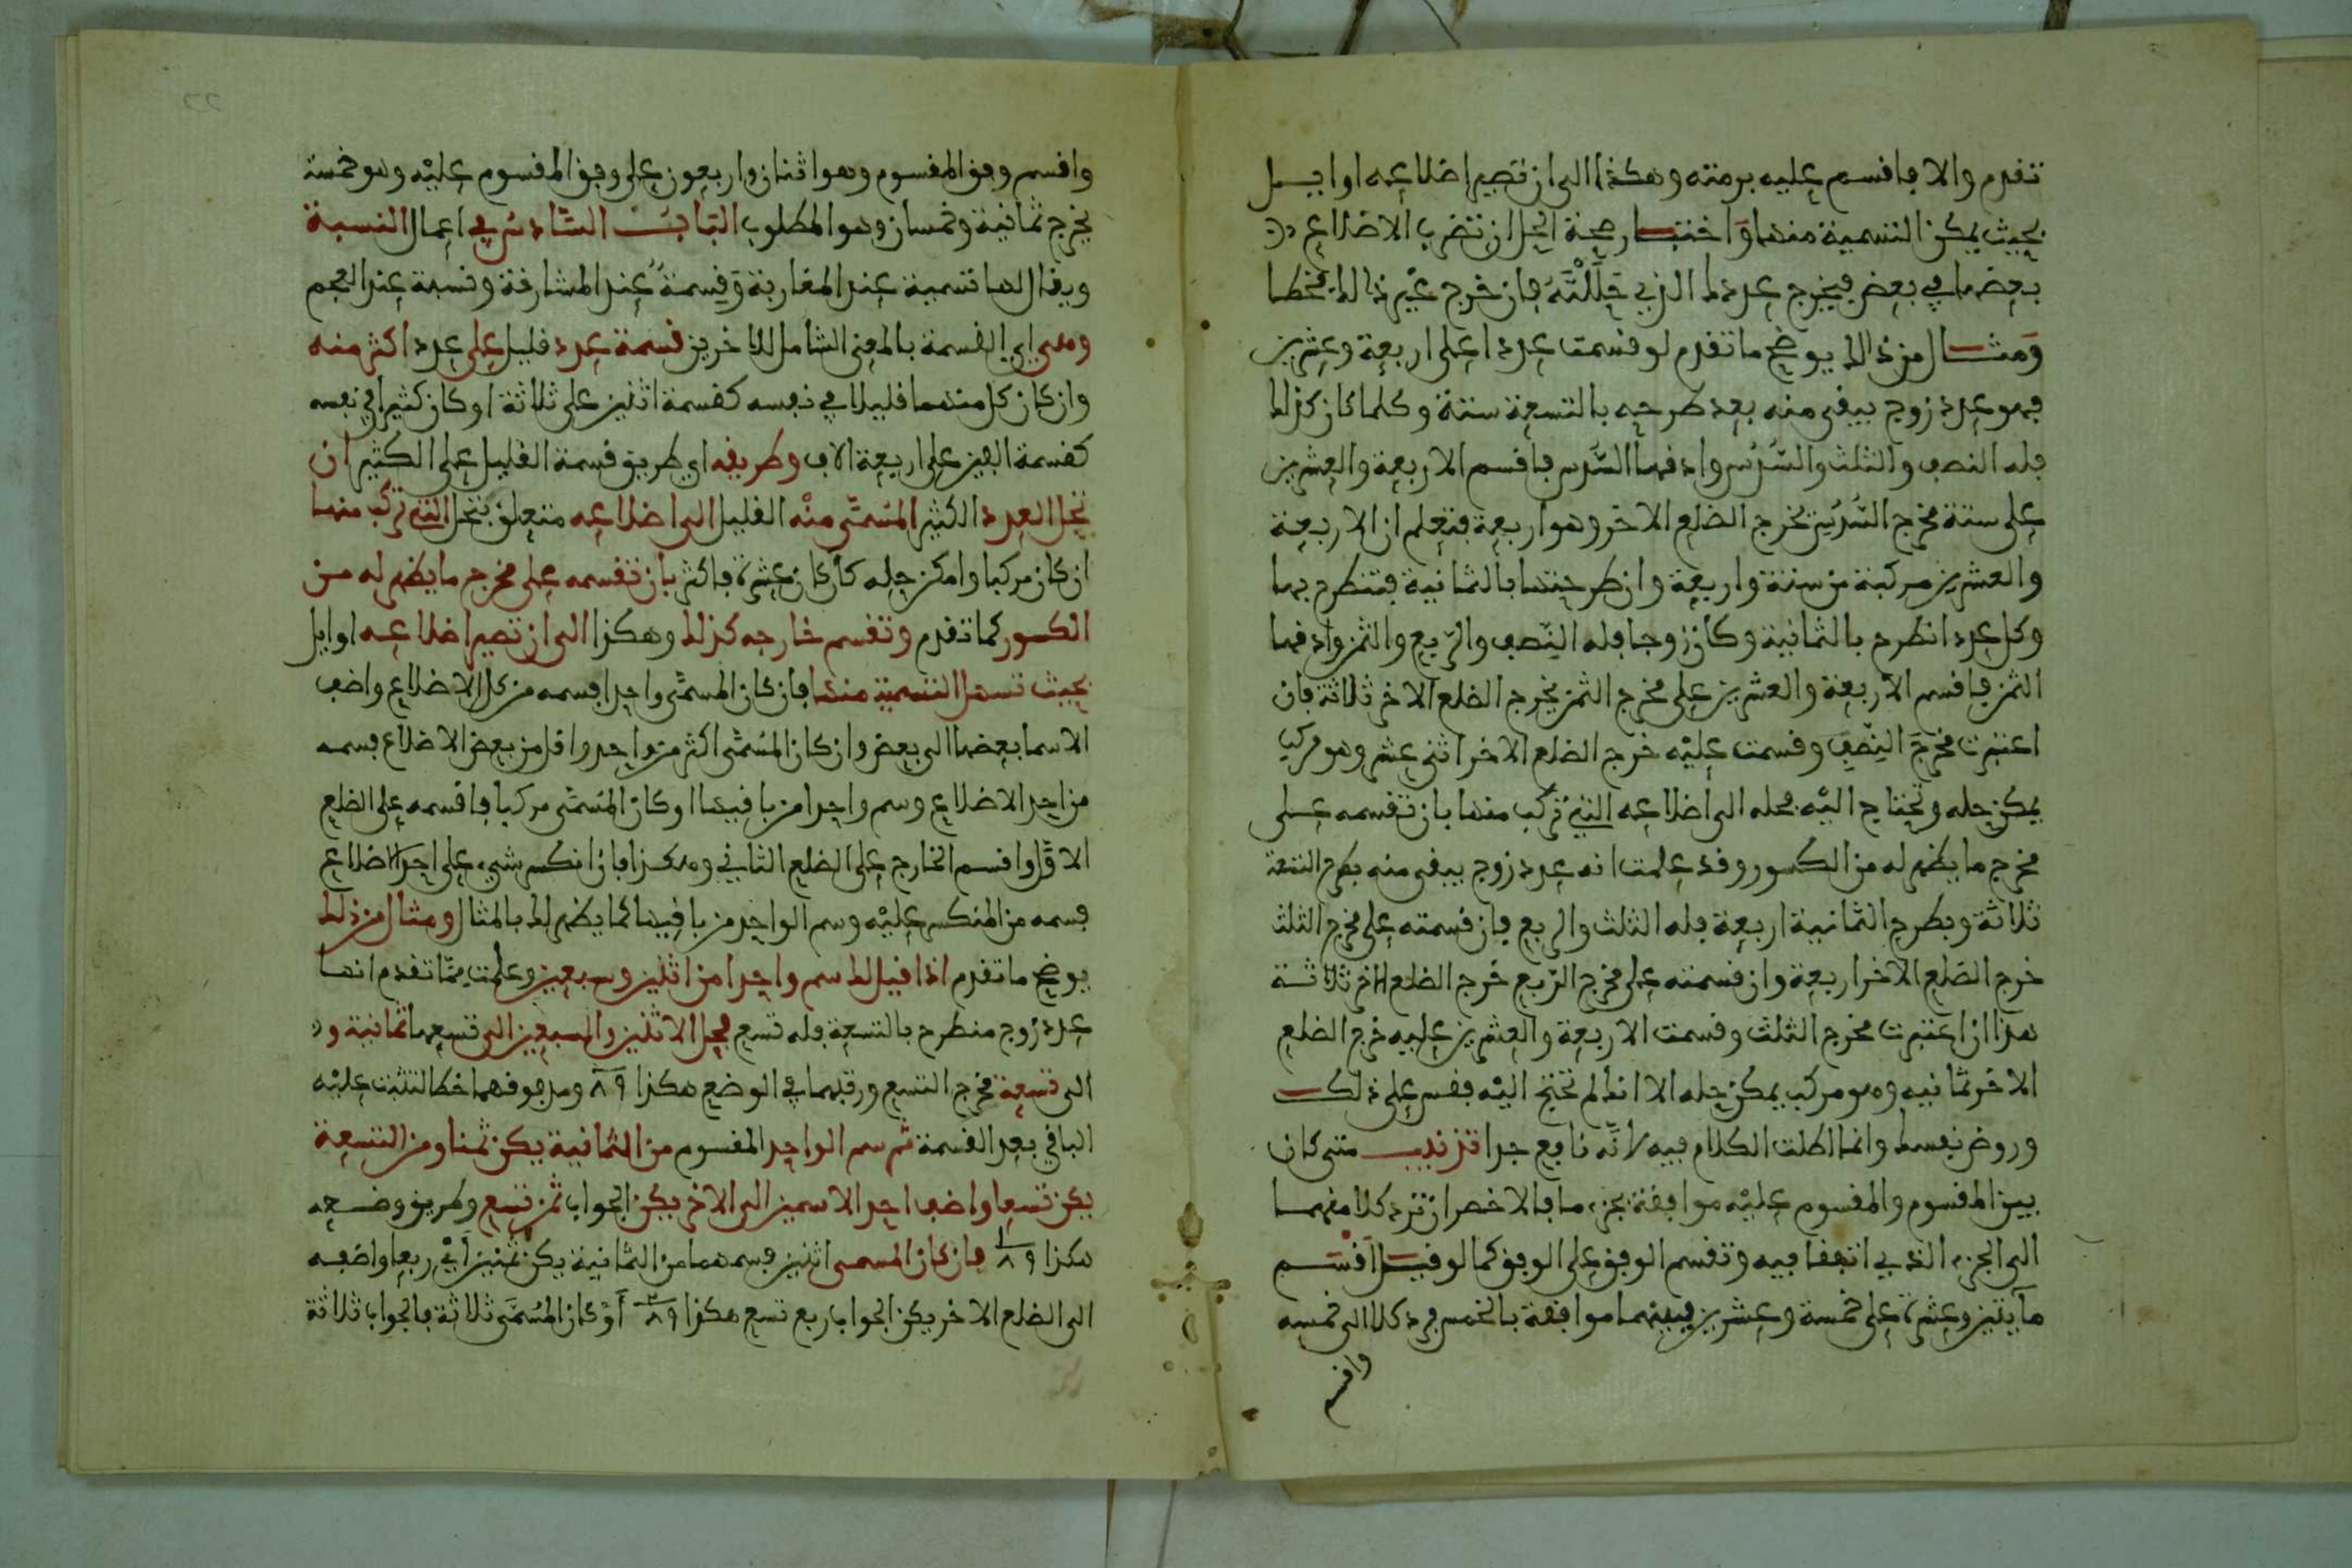 تقدم والا فاقسم عليه برمته وهكذا الى ان تصير اضلاعه اوايل
بحيث يمكن التسمية منها واختبار صحة الحل ان تضرب الاضلاع
بعضها في بعض فيخرج عددك الذي حَلَلْتَهُ فان خرج غير ذالك فخطا
وَمثال من ذالك يوضح ما تقدم لو قسمت عددا على اربعة وعشرين
فهو عدد زوج يبقى منه بعد طرحه بالتسعة ستة وكلما كان كذلك
فله النصف والثلث والسُّدُس وادقها السُّدس فاقسم الاربعة والعشرين
على ستة مخرج السُّدُس يخرج الضلع الاخر وهو اربعة فتعلم ان الاربعة
والعشرين مركبة من ستة واربعة وان طرحتها بالثمانية فتنطرح بها
وكل عدد انطرح بالثمانية وكان زوجا فله النِّصف والرّبع والثمن وادقها
الثمن فاقسم الاربعة والعشرين على مخرج الثمن يخرج الضلع الاخر ثلاثة فان
اعتبرت مخرج النِّصْفِ وقسمت عليْه خرج الضلع الاخر اثنى عشر وهو مركب
يمكن حله وتحتاج اليْه فحله الى اضلاعه التي تركب منها بان تقسمه على
مخرج ما يظهر له من الكسور وقد علمت انه عدد زوج يبقى منه بطرح التسعة
ثلاثة وبطرح الثمانية اربعة فله الثلث والربع فان قسمته على مخرج الثلث
خرج الضلع الاخر اربعة وان قسمته على مخرج الرّبع خرج الضلع الاخر ثلاثة
هذا ان اعتبرت مخرج الثلث وقسمت الاربعة والعشرين عليه خرج الضلع
الاخر ثمانيه وهو مركب يمكن حله الا انك لم تحتج اليْه فقس على ذلك
وروض نفسك وانما اطلت الكلام فيه لانَّه نافع جدا تذنيب متى كان
بين المقسوم والمقسوم عليْه موافقة بجزء ما فالاخصر ان ترد كلا منهما
الى الجزء الذي اتفقا فيه وتقسم الوفق على الوفق كما لو قيل اقسم
مايتين وعشرة على خمسة وعشرين فبينهما موافقة بالخمس فرد كلا الى خمسه
واقسم
واقسم وفق المقسوم وهو اثنان واربعون على وفق المقسوم عليْه وهو خمسة
يخرج ثمانية وخمسان وهو المطلوب البَابُ السَّادسُ في اعمال النسبة
ويقال لها تسمية عند المغاربة وَقِسمةٌ عند المشارقة ونسبة عند العجم
وهى اي القسمة بالمعنى الشامل للاخرين قسمة عدد قليل على عدد اكثر منه
وان كان كل منهما قليلا في نفسه كقسمة اثنين على ثلاثة او كان كثيرا في نفسه
كقسمة الفين على اربعة الاف وطريقه اي طريق قسمة القليل على الكثير ان
تحل العدد الكثير المسَمَّى منْه القليل الى اضلاعه متعلق بتحل التي تركب منها
ان كان مركبا وامكن حله كأن كان عشرة فاكثر بان تقسمه على مخرج ما يظهر له من
الكسور كما تقدم وتقسم خارجه كذلك وهكذا الى ان تصير اضلاعه اوايل
بحيث تسهل التسمية منها فان كان المسمّى واحدا فسمه من كل الاضلاع واضف
الاسما بعضها الى بعض وان كان المسَمَّى اكثر من واحد واقل من بعض الاضلاع فسمه
من احد الاضلاع وسم واحدا من باقيها او كان المسَمَّى مركبا فاقسمه على الضلع
الاوَّل واقسم الخارج على الضلع الثاني وهكذا فان انكسر شيء على احد الاضلاع
فسمه من المنكسر عليْه وسم الواحد من باقيها كما يظهر لك بالمثال ومثال من ذلك
يوضح ما تقدم اذا قيل لك سم واحدا من اثنين وسبعين وعلمت مِمَّا تقدم انها
عدد زوج منطرح بالتسعة فله تسع فحل الاثنين والسبعين الى تسعها ثمانية و
الى تسعة مخرج التسع ورتبهما في الوضع هكذا ٨٩ ومد فوقهما خطا لتثبت عليْه
الباقي بعد القسمة ثم سم الواحد المقسوم من الثمانية يكن ثمنا ومن التسعة
يكن تسعا واضف احد الاسمين الى الاخر يكن الجواب ثمن تسع وطريق وضعه
هكذا ١ ٨٩ فان كان المسمى اثنين فسمهما من الثمانية يكن ثمنين اَيْ ربعا واضفه
الى الضلع الاخر يكن الجواب ربع تسع هكذا ٢ ٨٩ أَوْ كان المُسَمَّى ثلاثة فالجواب ثلاثة